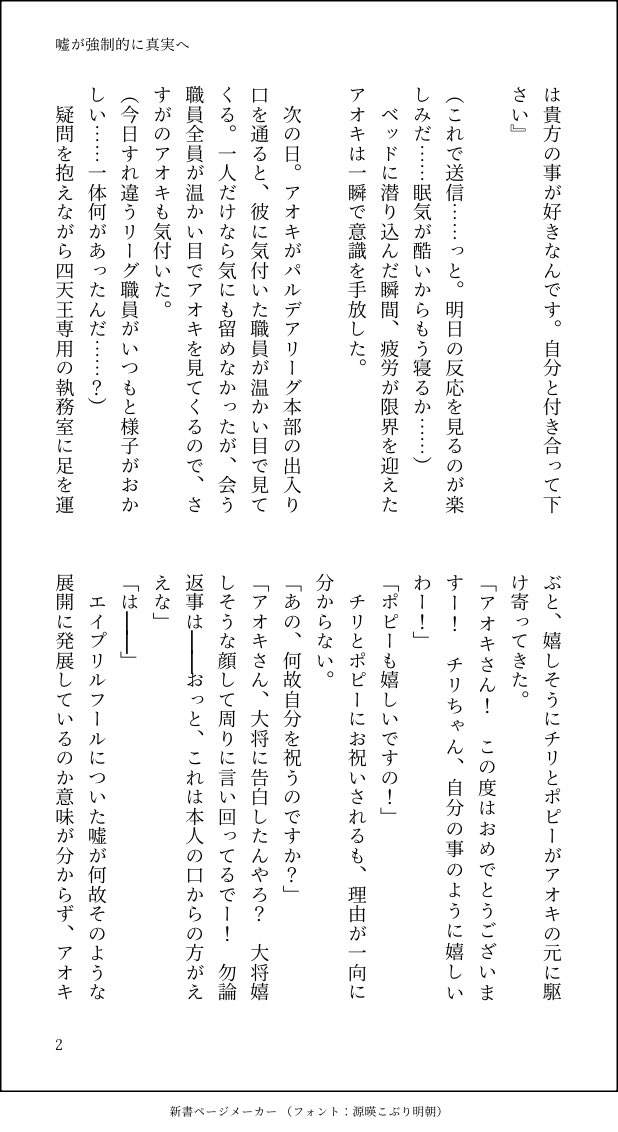 嘘が強制的に真実へ
は貴方の事が好きなんです。自分と付き合って下
さい』
(これで送信……っと。明日の反応を見るのが楽
しみだ……眠気が酷いからもう寝るか……)
　ベッドに潜り込んだ瞬間、疲労が限界を迎えた
アオキは一瞬で意識を手放した。
　次の日。アオキがパルデアリーグ本部の出入り
口を通ると、彼に気付いた職員が温かい目で見て
くる。一人だけなら気にも留めなかったが、会う
職員全員が温かい目でアオキを見てくるので、さ
すがのアオキも気付いた。
(今日すれ違うリーグ職員がいつもと様子がおか
しい……一体何があったんだ……？)
　疑問を抱えながら四天王専用の執務室に足を運
ぶと、嬉しそうにチリとポピーがアオキの元に駆
け寄ってきた。
「アオキさん！　この度はおめでとうございま
すー！　チリちゃん、自分の事のように嬉しい
わー！」
「ポピーも嬉しいですの！」
　チリとポピーにお祝いされるも、理由が一向に
分からない。
「あの、何故自分を祝うのですか？」
「アオキさん、大将に告白したんやろ？　大将嬉
しそうな顔して周りに言い回ってるでー！　勿論
返事は――おっと、これは本人の口からの方がえ
えな」
「は――」
　エイプリルフールについた嘘が何故そのような
展開に発展しているのか意味が分からず、アオキ
2
新書ページメーカー（フォント：源暎こぶり明朝）